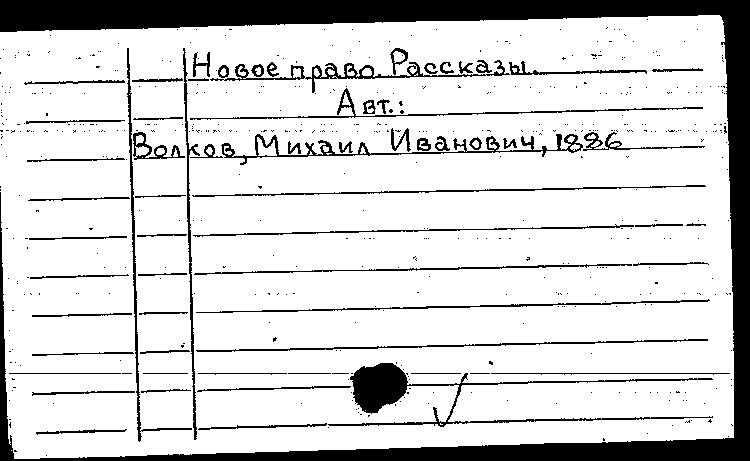 Новое право. Рассказы.
Авт.:
Волков, Михаил Иванович, 1886